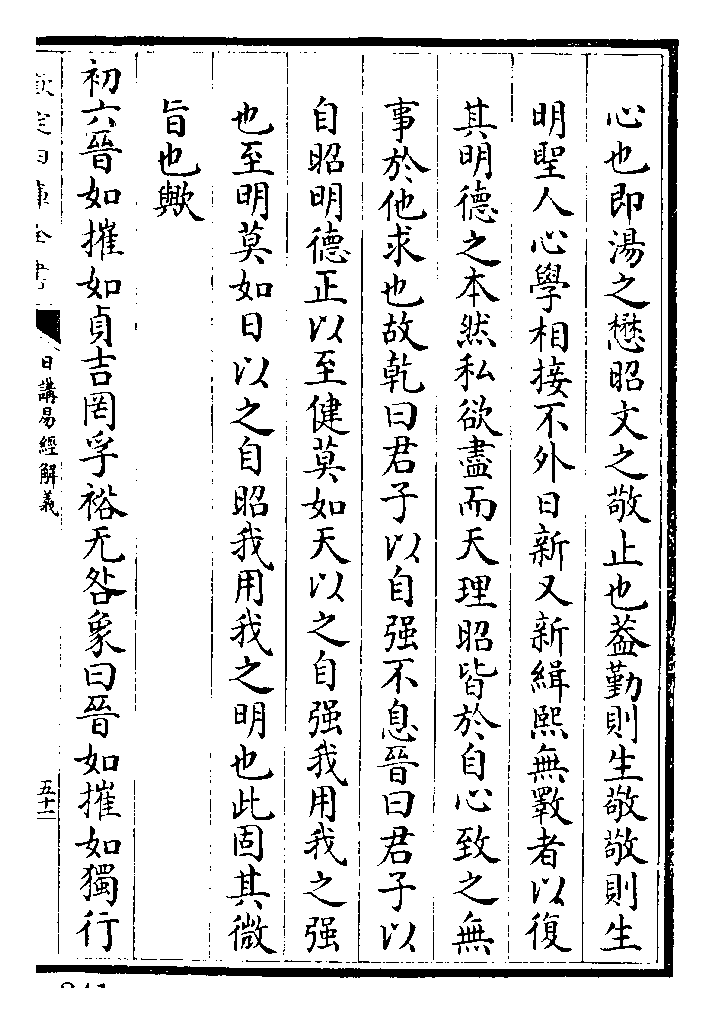 心也即湯之懋昭文之敬止也葢勤則生敬敬則生
明聖人心學相接不外日新又新緝熙無斁者以復
其明德之本然私欲盡而天理昭皆於自心致之無
事於他求也故乾曰君子以自强不息晉曰君子以
自昭明德正以至健莫如天以之自强我用我之强
也至明莫如日以之自昭我用我之明也此固其微
旨也歟
初六晉如摧如貞吉罔孚裕无咎象曰晉如摧如獨行
欽定四庫全書
日講易經解義
五十二